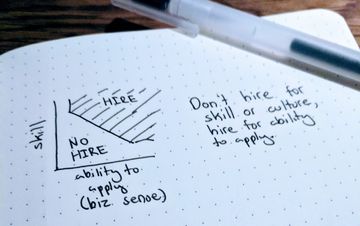 HIRE
skill
NO
HIRE
ability to
apply
(biz sense)
Don't hire for
skill or culture,
hire for ability
to apply.